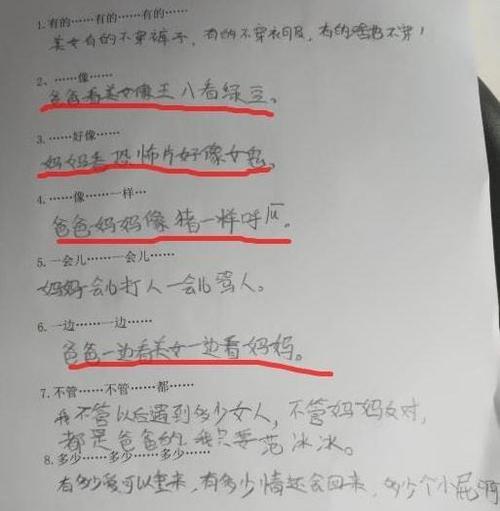 1.有的……有的……有的……
美女有的不穿裤子，有的不穿衣服，有的啥都不穿！
2、……像……
爸爸看美女像王八看绿豆。
3.……好像……
妈妈看恐怖片好像女鬼。
4.……像……一样…
爸爸妈妈像猪一样呼瓜。
5.一会儿……一会儿……
妈妈一会儿打人一会儿骂人。
6.一边……一边……
爸爸一边看美女一边看妈妈。
7.不管……不管……都……
我不管以后遇到多少女人，不管妈妈反对，
都是爸爸的，我只要范冰冰。
8.多少……多少……多少……
有多少爱可以重来，有多少情还会回来，多少个小屁